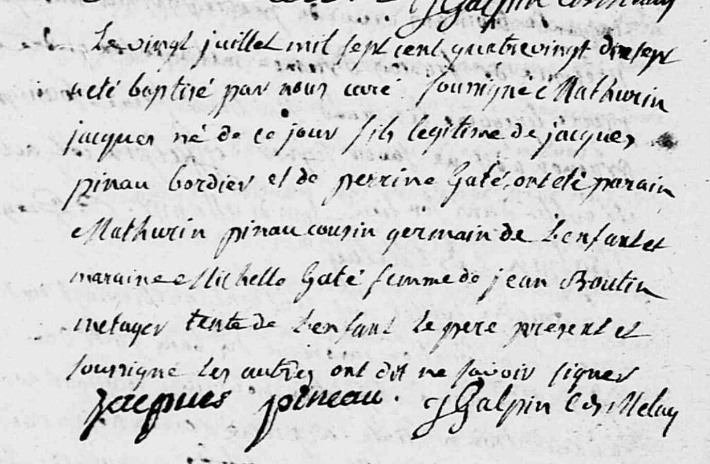 Galpin
Le vingt juillet mil sept cent quatrevingt dixsept
a eté baptisé par nous curé soussigné Mathurin
jacques né de ce jour fils legitime de jacques
pinau bordier et de perrine Gaté ont eté parain
Mathurin pinau cousin germain de L'enfant et
maraine Michelle Gaté femme de jean Boutin
metayer tente de L'enfant Le pere present et
soussigné Les autres ont dit ne savoir signer
jacques pineau. Galpin